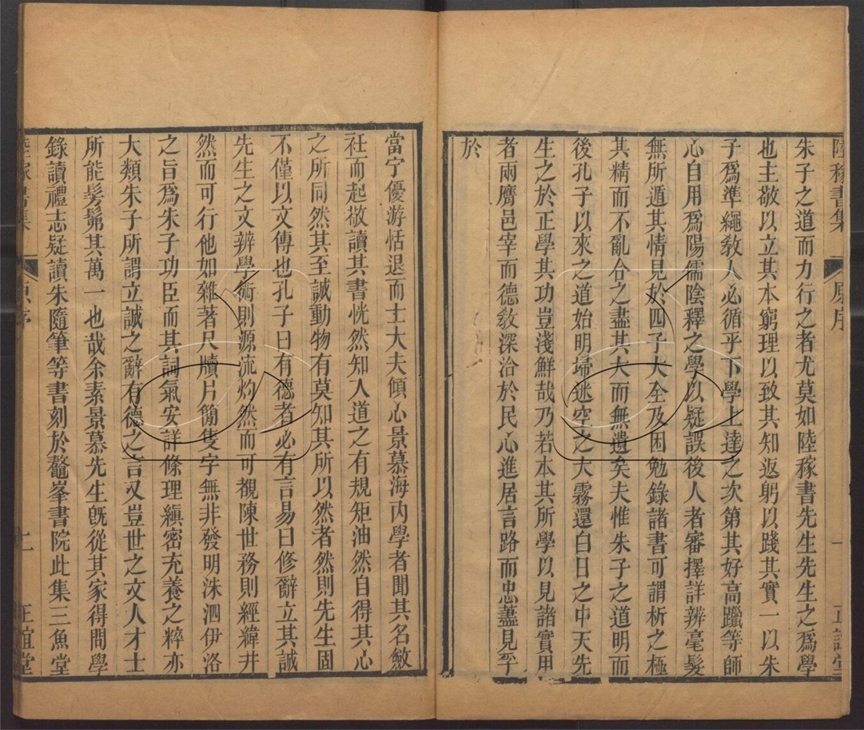 陸稼書集 原序 一 正誼堂
朱子之道而力行之者尤莫如陸稼書先生先生之爲學
也主敬以立其本窮理以致其知返躬以踐其實一以朱
子爲準繩教人必循乎下學上達之次第其好高躐等師
心自用爲陽儒陰釋之學以疑誤後人者審擇詳辨毫髮
無所遁其情見於四子大全及困勉錄諸書可謂析之極
其精而不亂合之盡其大而無遺矣夫惟朱子之道明而
後孔子以來之道始明埽迷空之大霧還白日之中天先
生之於正學其功豈淺鮮哉乃若本其所學以見諸實用
者兩膺邑宰而德教深洽於民心進居言路而忠藎見乎
於
當宁優游恬退而士大夫傾心景慕海內學者聞其名斂
衽而起敬讀其書恍然知人道之有規矩油然自得其心
之所同然其至誠動物有莫知其所以然者然則先生固
不僅以文傳也孔子曰有德者必有言易曰修辭立其誠
先生之文辨學術則源流灼然而可覩陳世務則經緯井
然而可行他如雜著尺牘片簡隻字無非發明洙泗伊洛
之旨爲朱子功臣而其詞氣安詳條理縝密充養之粹亦
大類朱子所謂立誠之辭有德之言又豈世之文人才士
所能髣髴其萬一也哉余素景慕先生旣從其家得問學
錄讀禮志疑讀朱隨筆等書刻於鼇峯書院此集三魚堂
陸稼書集 原序 二 正誼堂